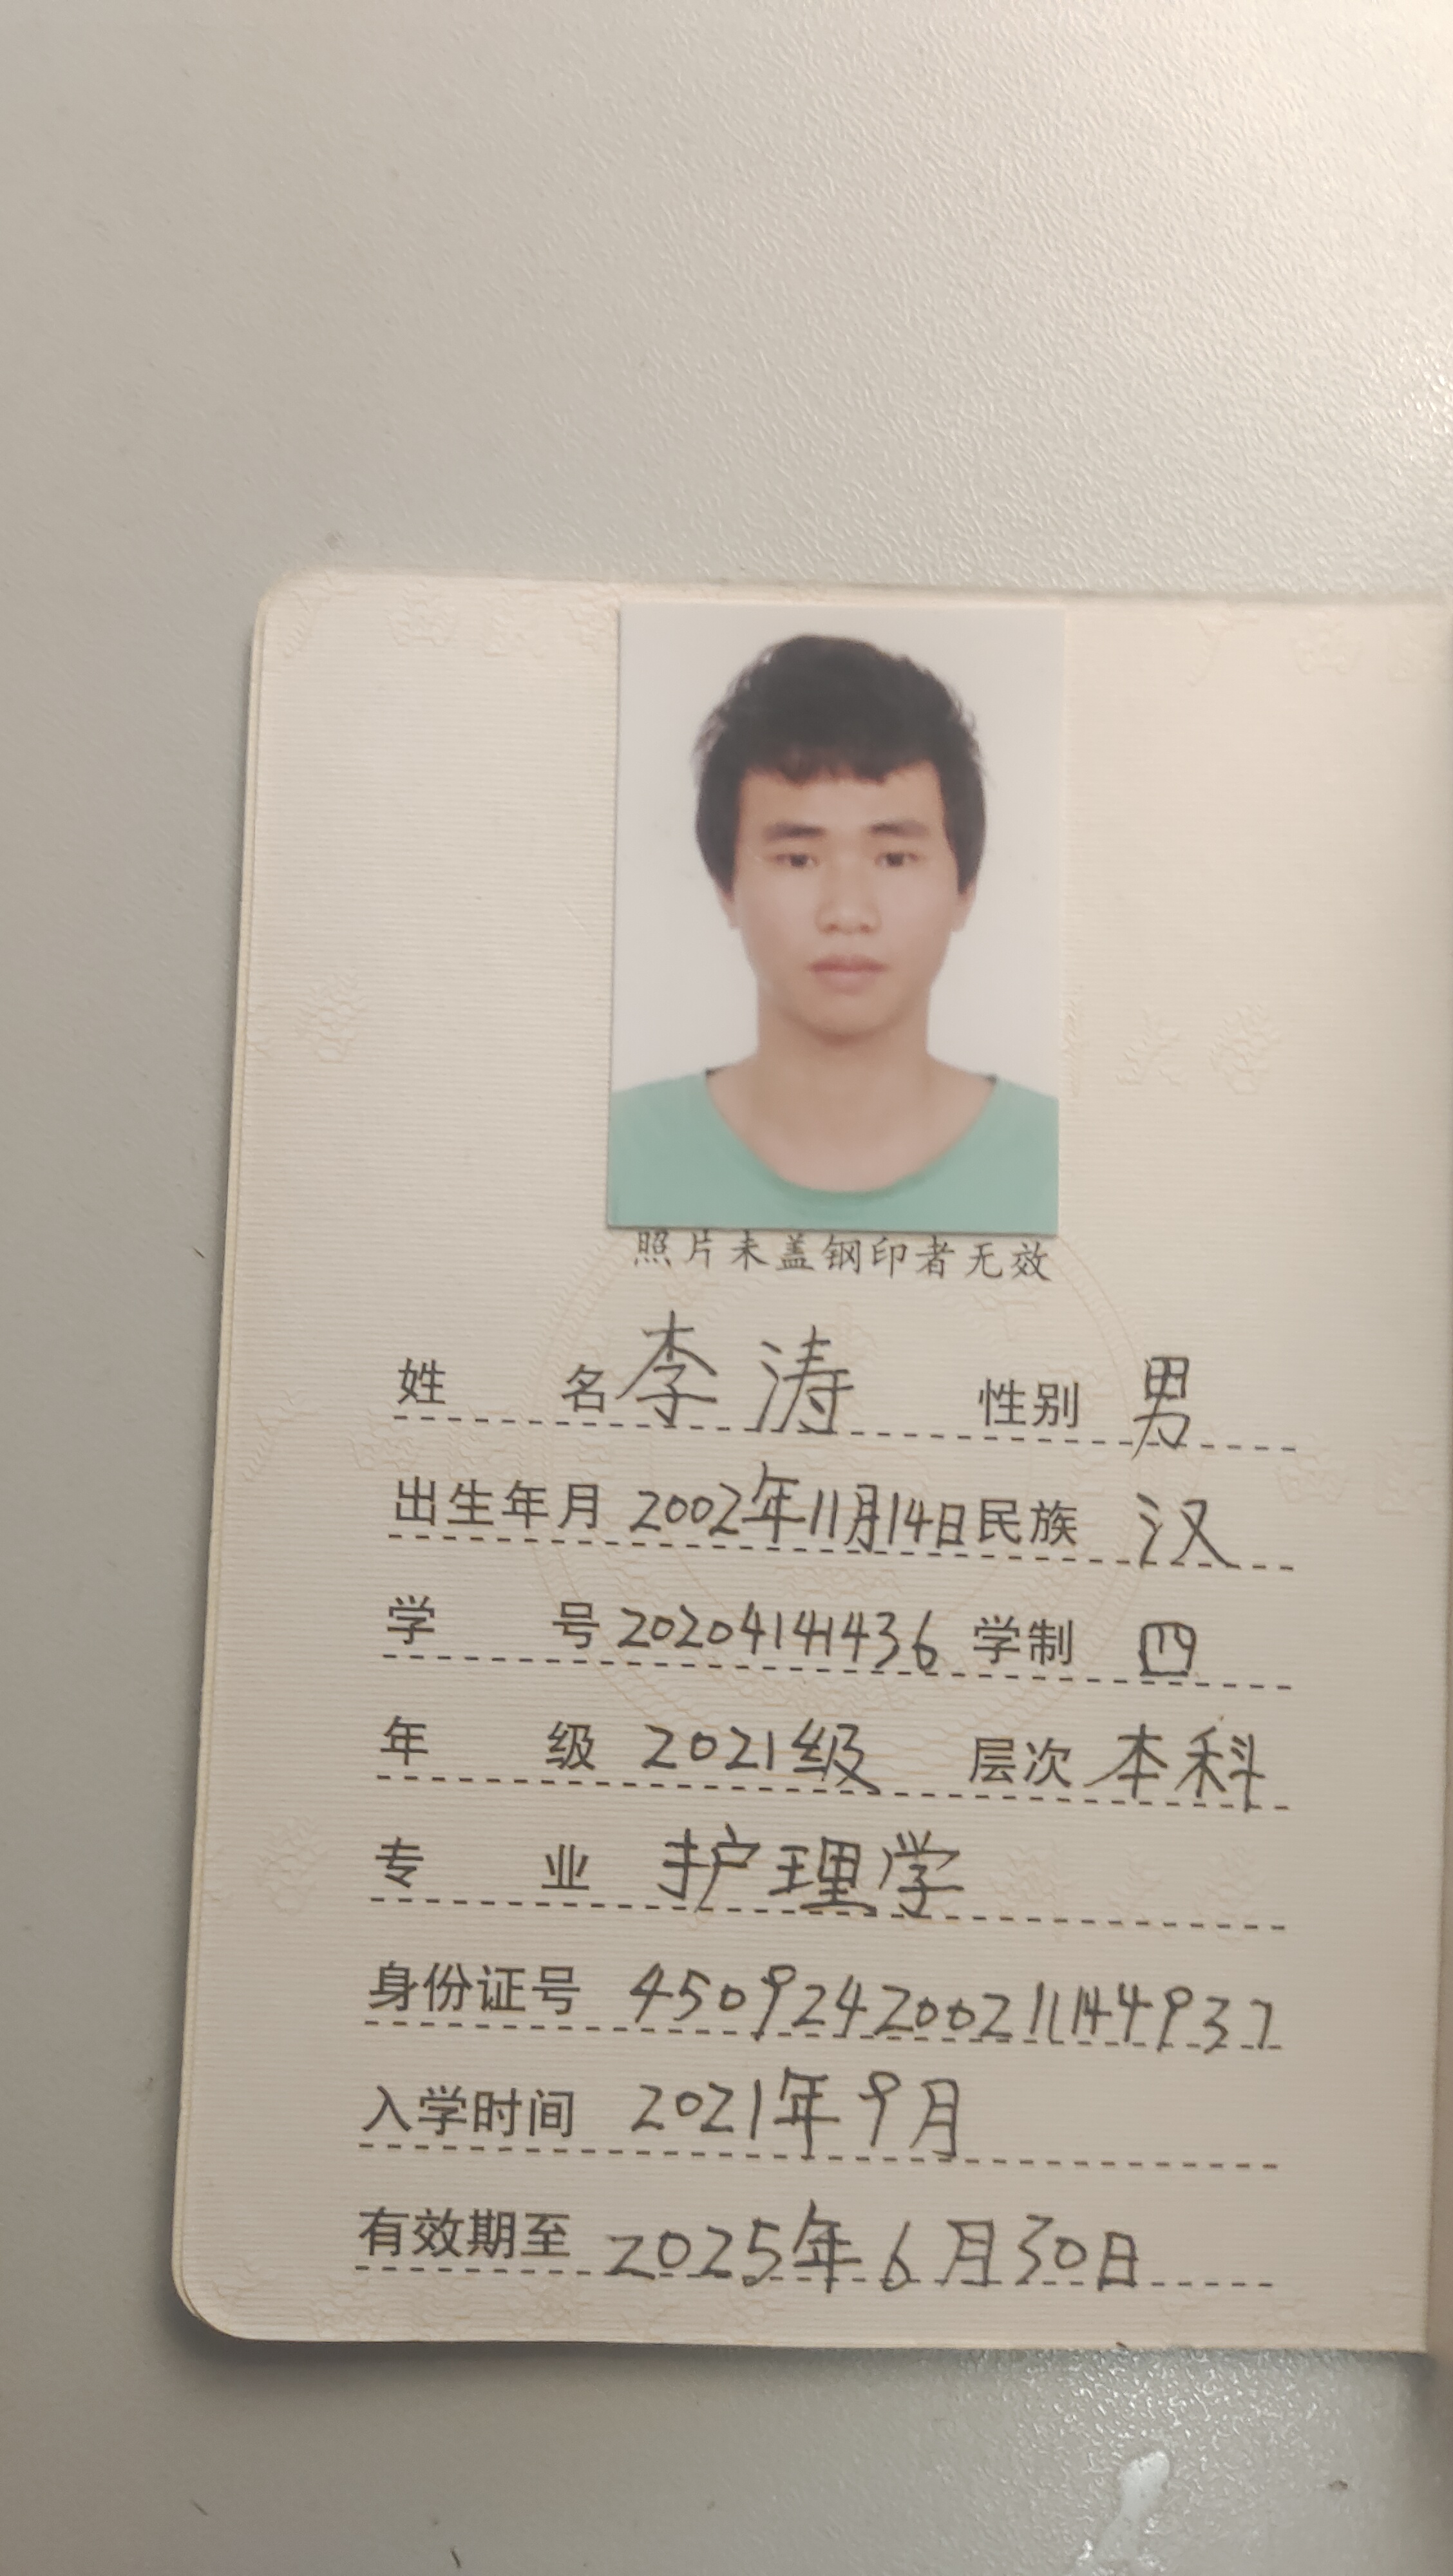 照片未盖钢印者无效
姓名 李涛 性别 男
出生年月 2002年11月14日 民族 汉
学号 20204141436 学制 四
年级 2021级 层次 本科
专业 护理学
身份证号 450924200211144937
入学时间 2021年9月
有效期至 2025年6月30日